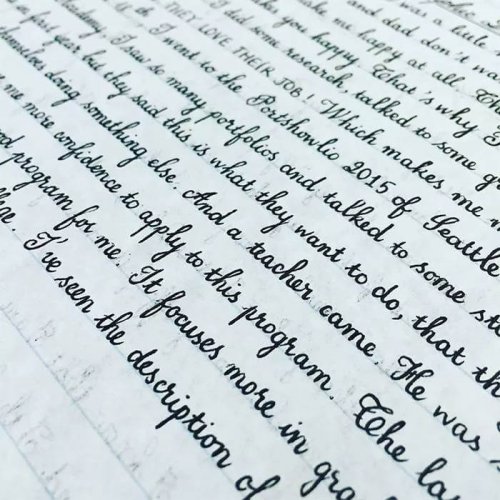 was a little
and dad don't
me happy at all.
you happy. That's why I
I did some research, talked to some
THEY LOVE THEIR JOB! Which makes me
I went to the Portshowlio 2015 of Seattle
I saw to many portfolios and talked to some
first year but they said this is what they want to do, that
doing something else. And a teacher came. He was
me more confidence to apply to this program. The
program for me. It focuses more in
I've seen the description of